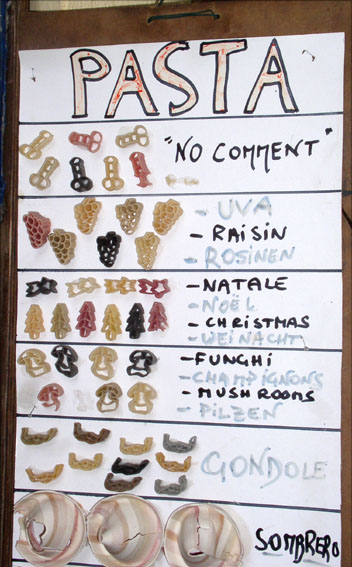 PASTA
"NO COMMENT"
- UVA
- RAISIN
- ROSINEN
- NATALE
- NOËL
- CHRISTMAS
- WEINACHT
- FUNGHI
- CHAMPIGNONS
- MUSHROOMS
- PILZEN
GONDOLE
SOMBRERO